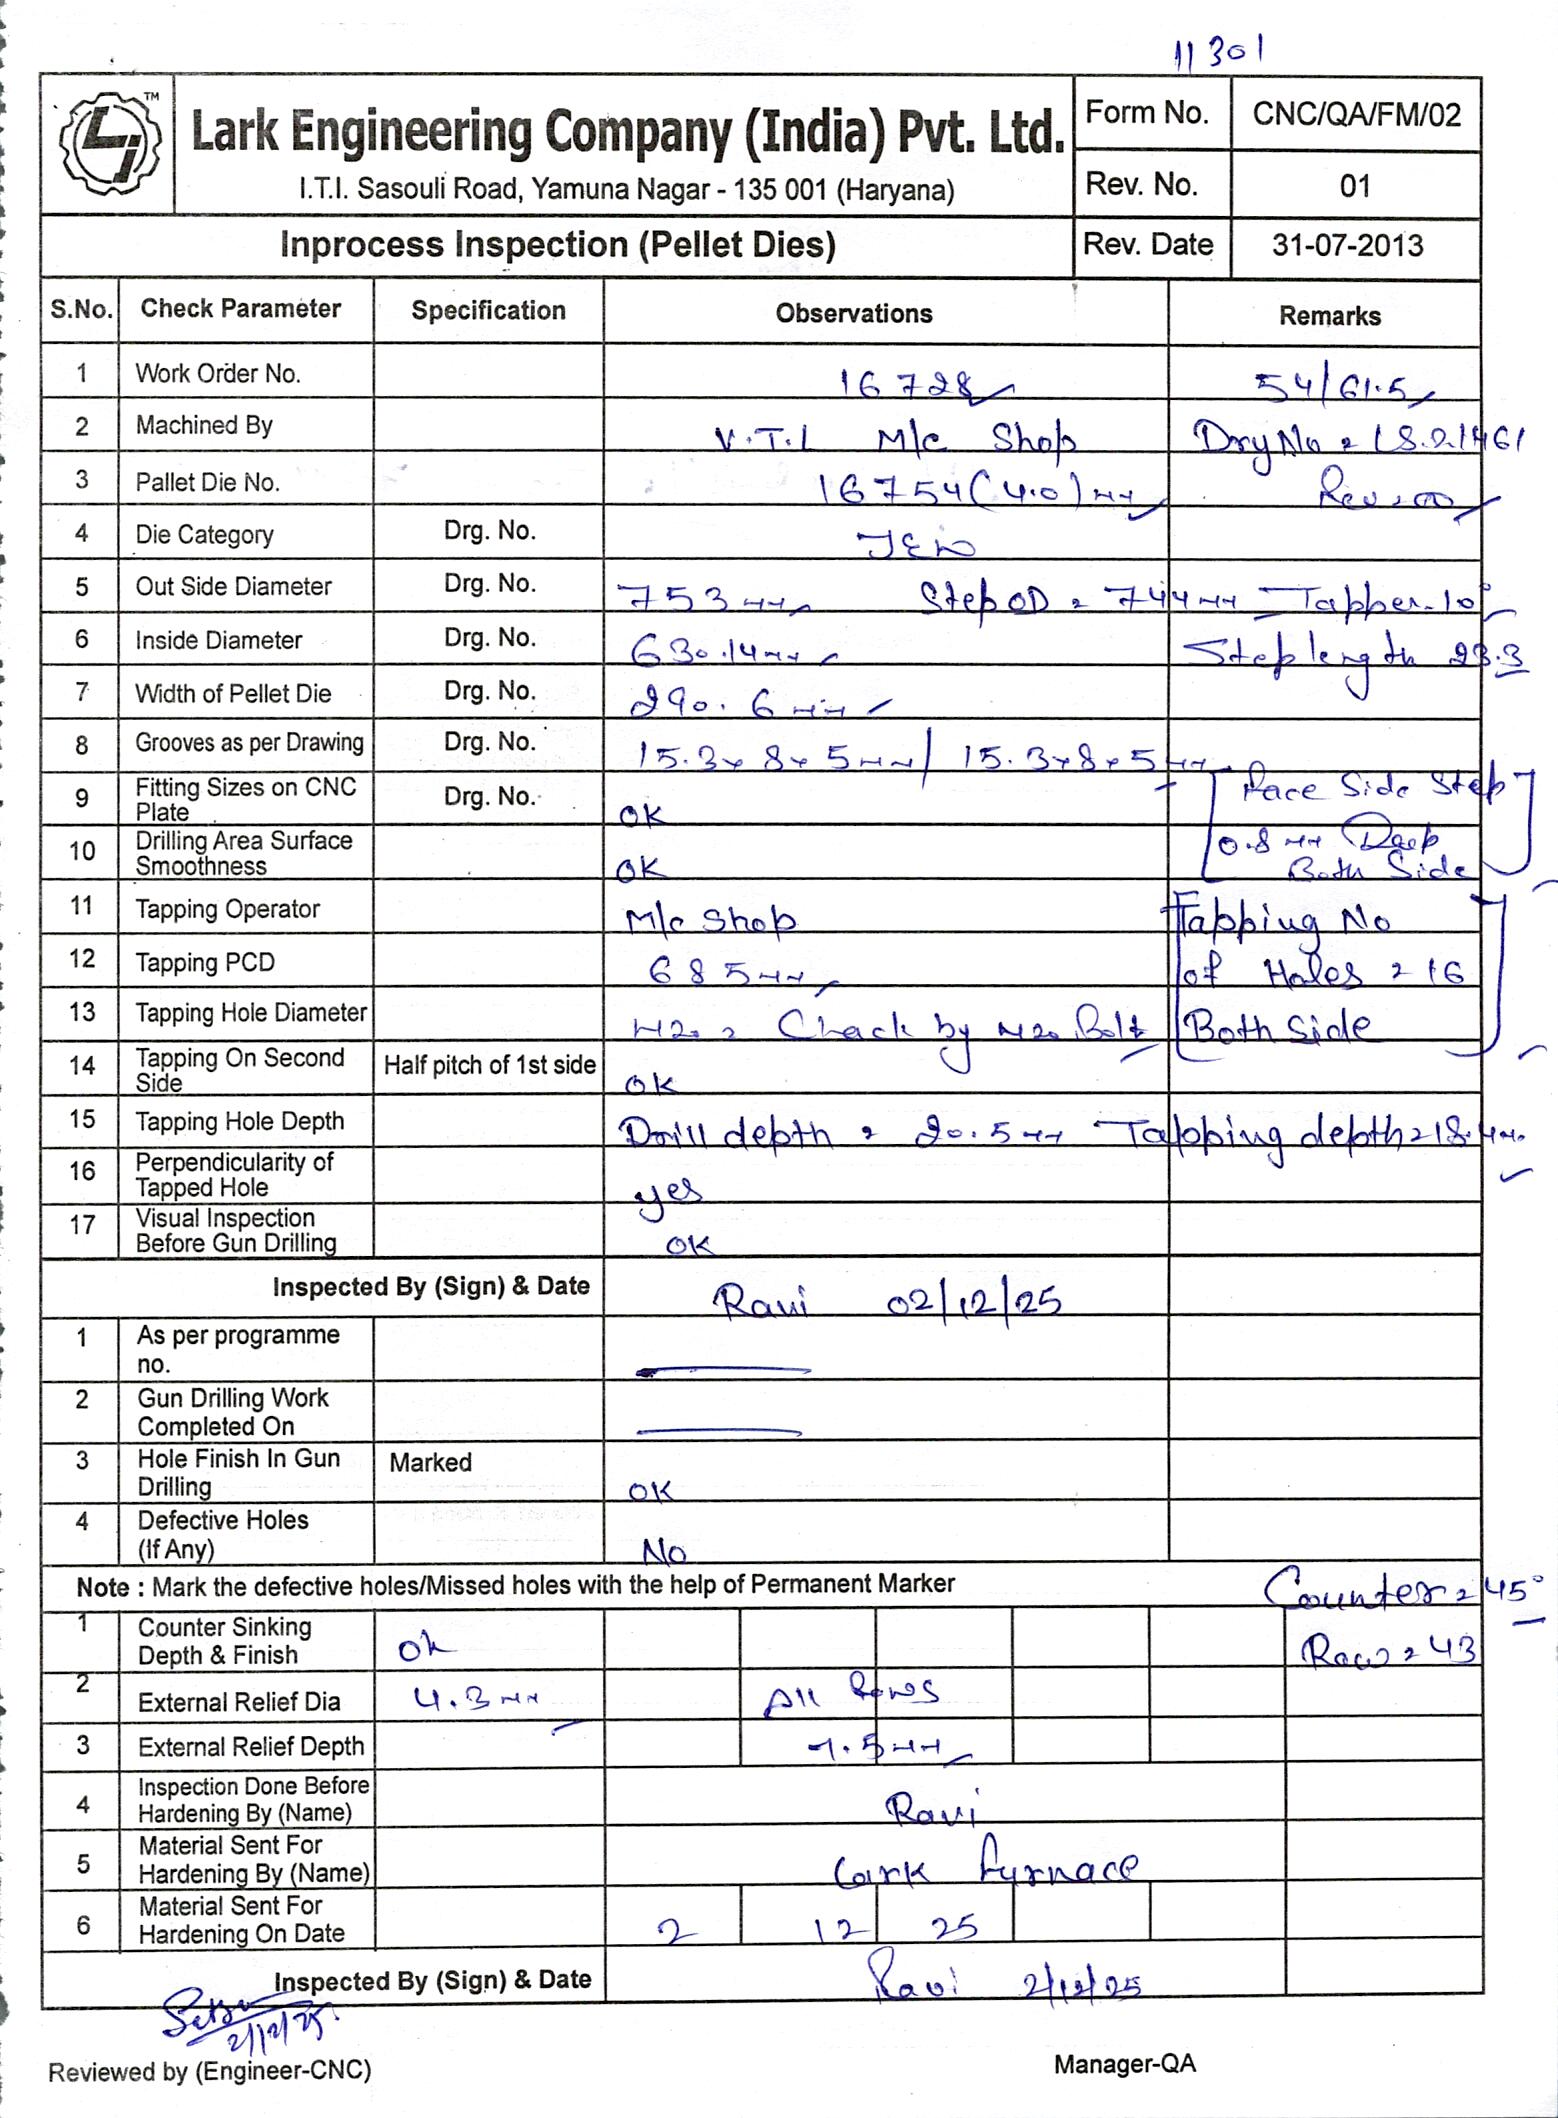 11301
Lark Engineering Company (India) Pvt. Ltd.
TM
I.T.I. Sasouli Road, Yamuna Nagar - 135 001 (Haryana)
Form No. CNC/QA/FM/02
Rev. No. 01
Inprocess Inspection (Pellet Dies) Rev. Date 31-07-2013
S.No. Check Parameter Specification Observations Remarks
1 Work Order No. 16728 54/61.5
2 Machined By V.T.L M/c Shop
3 Pallet Die No. 16754 (4.0) mm Rev=00
4 Die Category Drg. No.
5 Out Side Diameter Drg. No. 753 mm Step OD = 744 mm Tapper-10°
6 Inside Diameter Drg. No. 630.14 mm Step length 23.3
7 Width of Pellet Die Drg. No. 290.6 mm
8 Grooves as per Drawing Drg. No. 15.3x8x5mm / 15.3x8x5mm
9 Fitting Sizes on CNC Plate Drg. No. OK Face Side Step
10 Drilling Area Surface Smoothness OK 0.8 mm Deep Both Side
11 Tapping Operator M/c Shop Tapping No
12 Tapping PCD 685 mm of Holes = 16
13 Tapping Hole Diameter M20 = Chack by M20 Bolt Both Side
14 Tapping On Second Side Half pitch of 1st side OK
15 Tapping Hole Depth Drill depth = 20.5 mm Tapping depth = 18.4 mm
16 Perpendicularity of Tapped Hole yes
17 Visual Inspection Before Gun Drilling OK
Inspected By (Sign) & Date Ravi 02/12/25
1 As per programme no.
2 Gun Drilling Work Completed On
3 Hole Finish In Gun Drilling Marked OK
4 Defective Holes (If Any) No
Note : Mark the defective holes/Missed holes with the help of Permanent Marker Counter = 45°
1 Counter Sinking Depth & Finish Ok Row = 43
2 External Relief Dia 4.3 mm All Rows
3 External Relief Depth
4 Inspection Done Before Hardening By (Name) Ravi
5 Material Sent For Hardening By (Name) Lark Furnace
6 Material Sent For Hardening On Date 2 12 25
Inspected By (Sign) & Date Ravi 2/12/25
2/12/25
Reviewed by (Engineer-CNC) Manager-QA